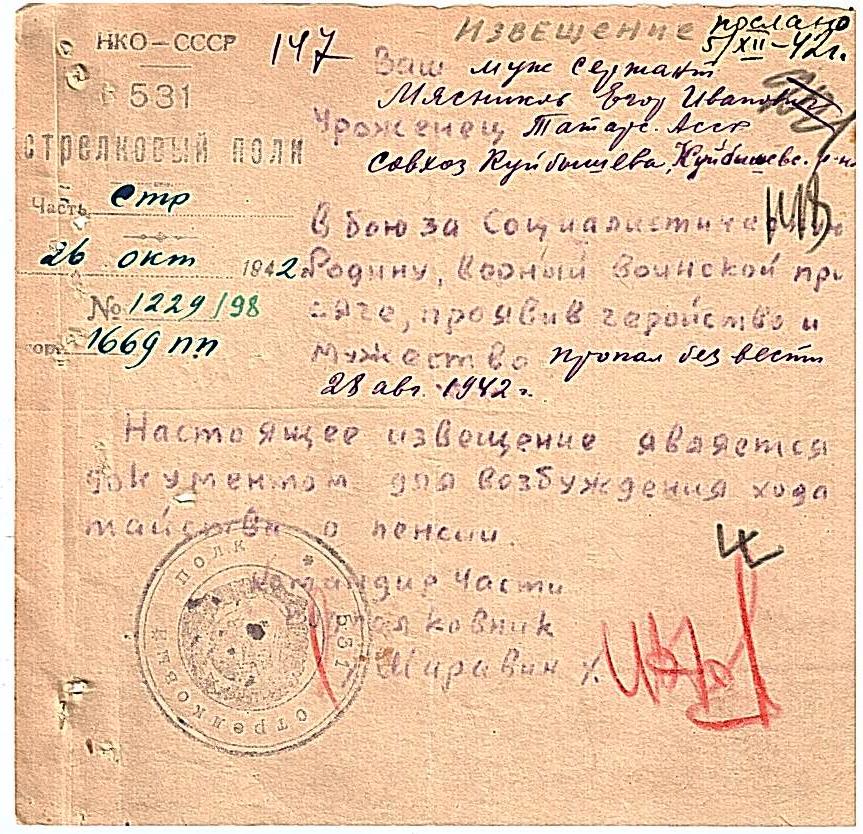 НКО–СССР
531
стрелковый полк
Часть Стр
26 окт 1942
№ 1229/98
1669 пп
147
Извещение
послано
5/XII–42г.
Ваш муж сержант
Мясников Егор Иванович
Уроженец Татарс. Асср
совхоз Куйбышева, Куйбышевс. р-на
В бою за Социалистическую
Родину, верный воинской при
сяге, проявив геройство и
мужество пропал без вести
28 авг. 1942 г.
Настоящее извещение является
документом для возбуждения хода
тайства о пенсии.
Командир Части
ковник
531 стрелковый полк *